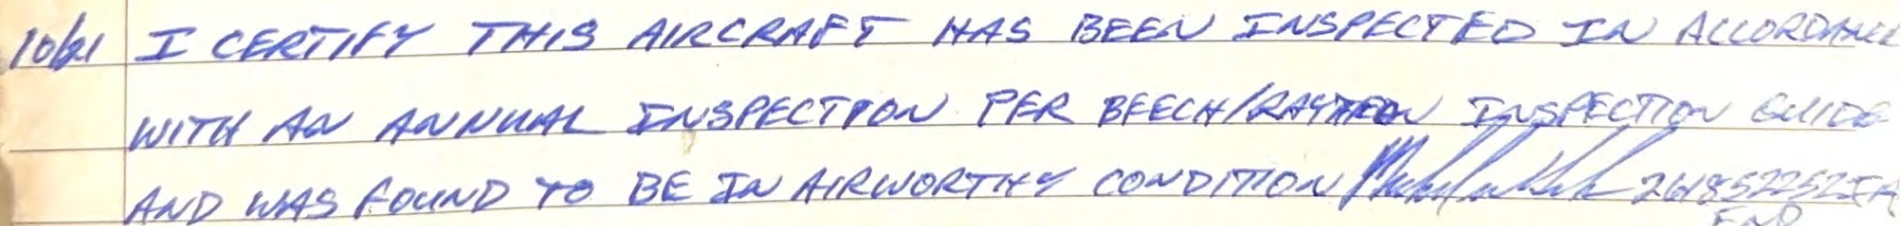 10/21 I CERTIFY THIS AIRCRAFT HAS BEEN INSPECTED IN ACCORDANCE
WITH AN ANNUAL INSPECTION PER BEECH/RAYTHEON INSPECTION GUIDE
AND WAS FOUND TO BE IN AIRWORTHY CONDITION 261852252IA
END